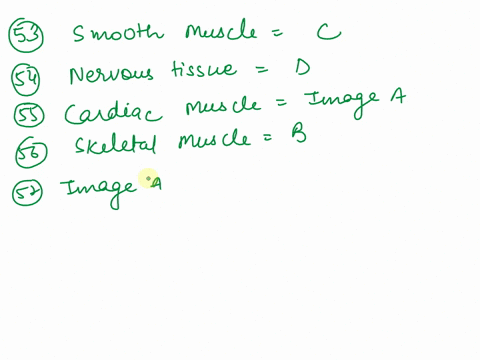 53 Smooth muscle = C
54 Nervous tissue = D
55 Cardiac muscle = Image A
56 Skeletal muscle = B
57 Image A